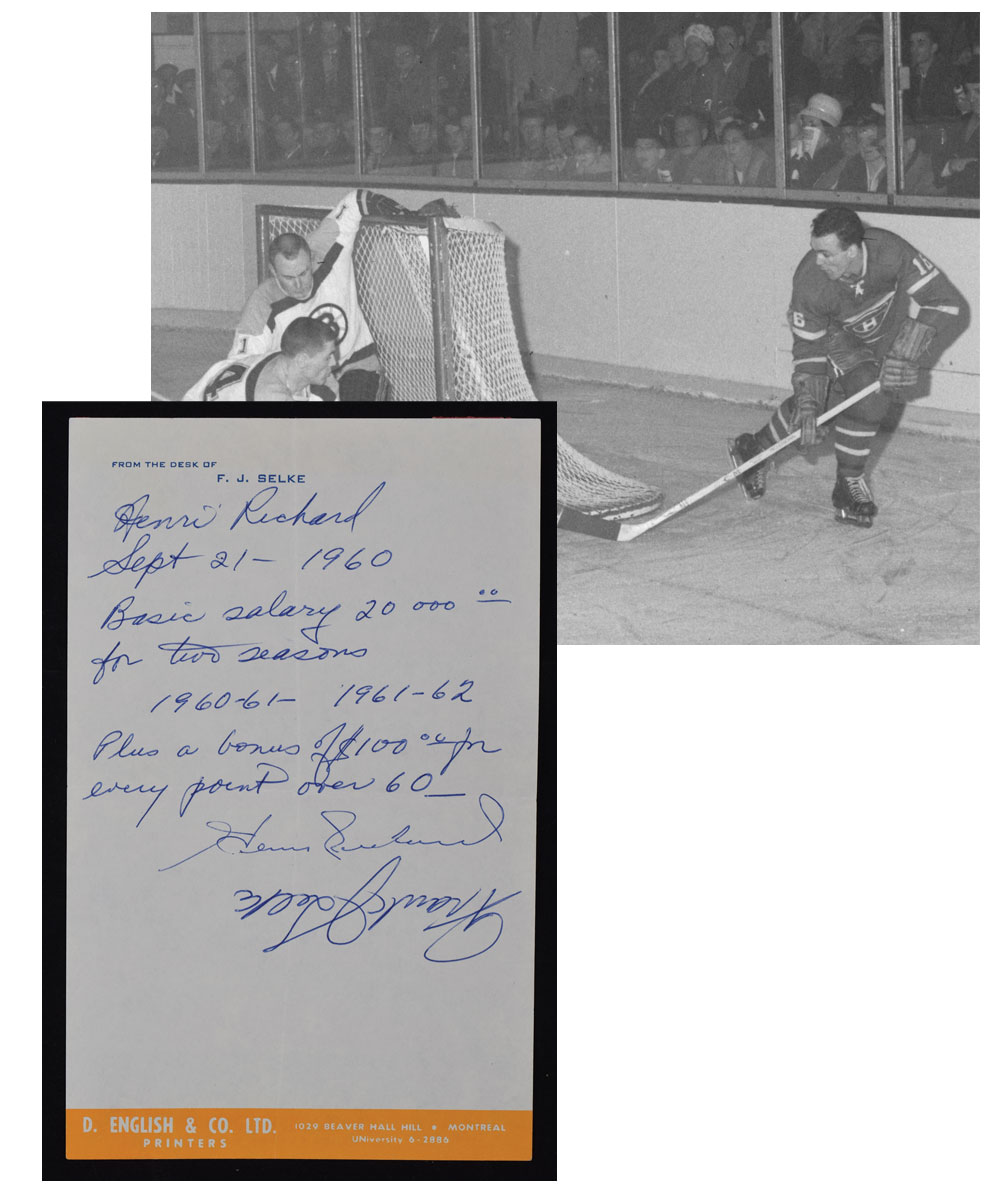 1
1
16
16
H
FROM THE DESK OF
F. J. SELKE
Henri Richard
Sept 21 – 1960
Basic salary 20 000 00
for two seasons
1960-61 – 1961-62
Plus a bonus of $100 00 for
every point over 60 –
Henri Richard
Frank J Selke
D. ENGLISH & CO. LTD.
PRINTERS
1029 BEAVER HALL HILL • MONTREAL
UNiversity 6-2886